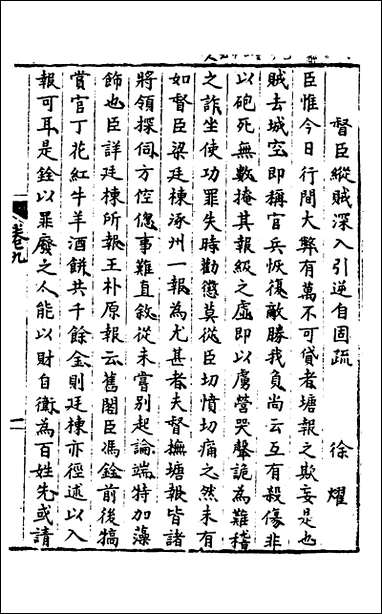 督臣縱賊深入引逆自固疏　徐燿
臣惟今日行間大弊有萬不可貸者塘報之欺妄是也
賊去城空即稱官兵恢復敵勝我負尚云互有殺傷非
以砲死無數掩其報級之虛即以虜營哭聲詭為難稽
之詐坐使功罪失時勸懲莫從臣切憤切痛之然未有
如督臣梁廷棟涿州一報為尤甚者夫督撫塘報皆諸
將領探伺方倥傯事難直敘從未嘗別起論端特加藻
飾也臣詳廷棟所報王朴原報云舊閣臣馮銓前後犒
賞官丁花紅牛羊酒餅共千餘金則廷棟亦徑述以入
報可耳是銓以罪廢之人能以財自衛為百姓先或請
卷九